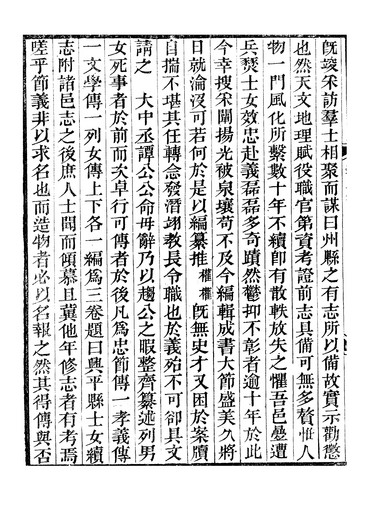 既竣采訪羣士相聚而謀曰州縣之有志所以備故實示勸懲
也然天文地理賦役職官第資考證前志具備可無多贅惟人
物一門風化所繫數十年不續卽有散軼放失之懼吾邑疊遭
兵燹士女效忠赴義磊磊多奇蹟然鬱抑不彰者逾十年於此
今幸搜采闡揚光被泉壤苟不及今編輯成書大節盛美久將
日就淪沒可若何於是以編纂推權權旣無史才又困於案牘
自揣不堪其任轉念發潛翊教長令職也於義殆不可卻具文
請之 大中丞譚公公命毋辭乃以趨公之暇整齊纂述列男
女死事者於前而次卓行可傳者於後凡爲忠節傳一孝義傳
一文學傳一列女傳上下各一編爲三卷題曰興平縣士女續
志附諸邑志之後庶人士聞而傾慕且冀他年修志者有考焉
嗟乎節義非以求名也而造物者必以名報之然其得傳與否